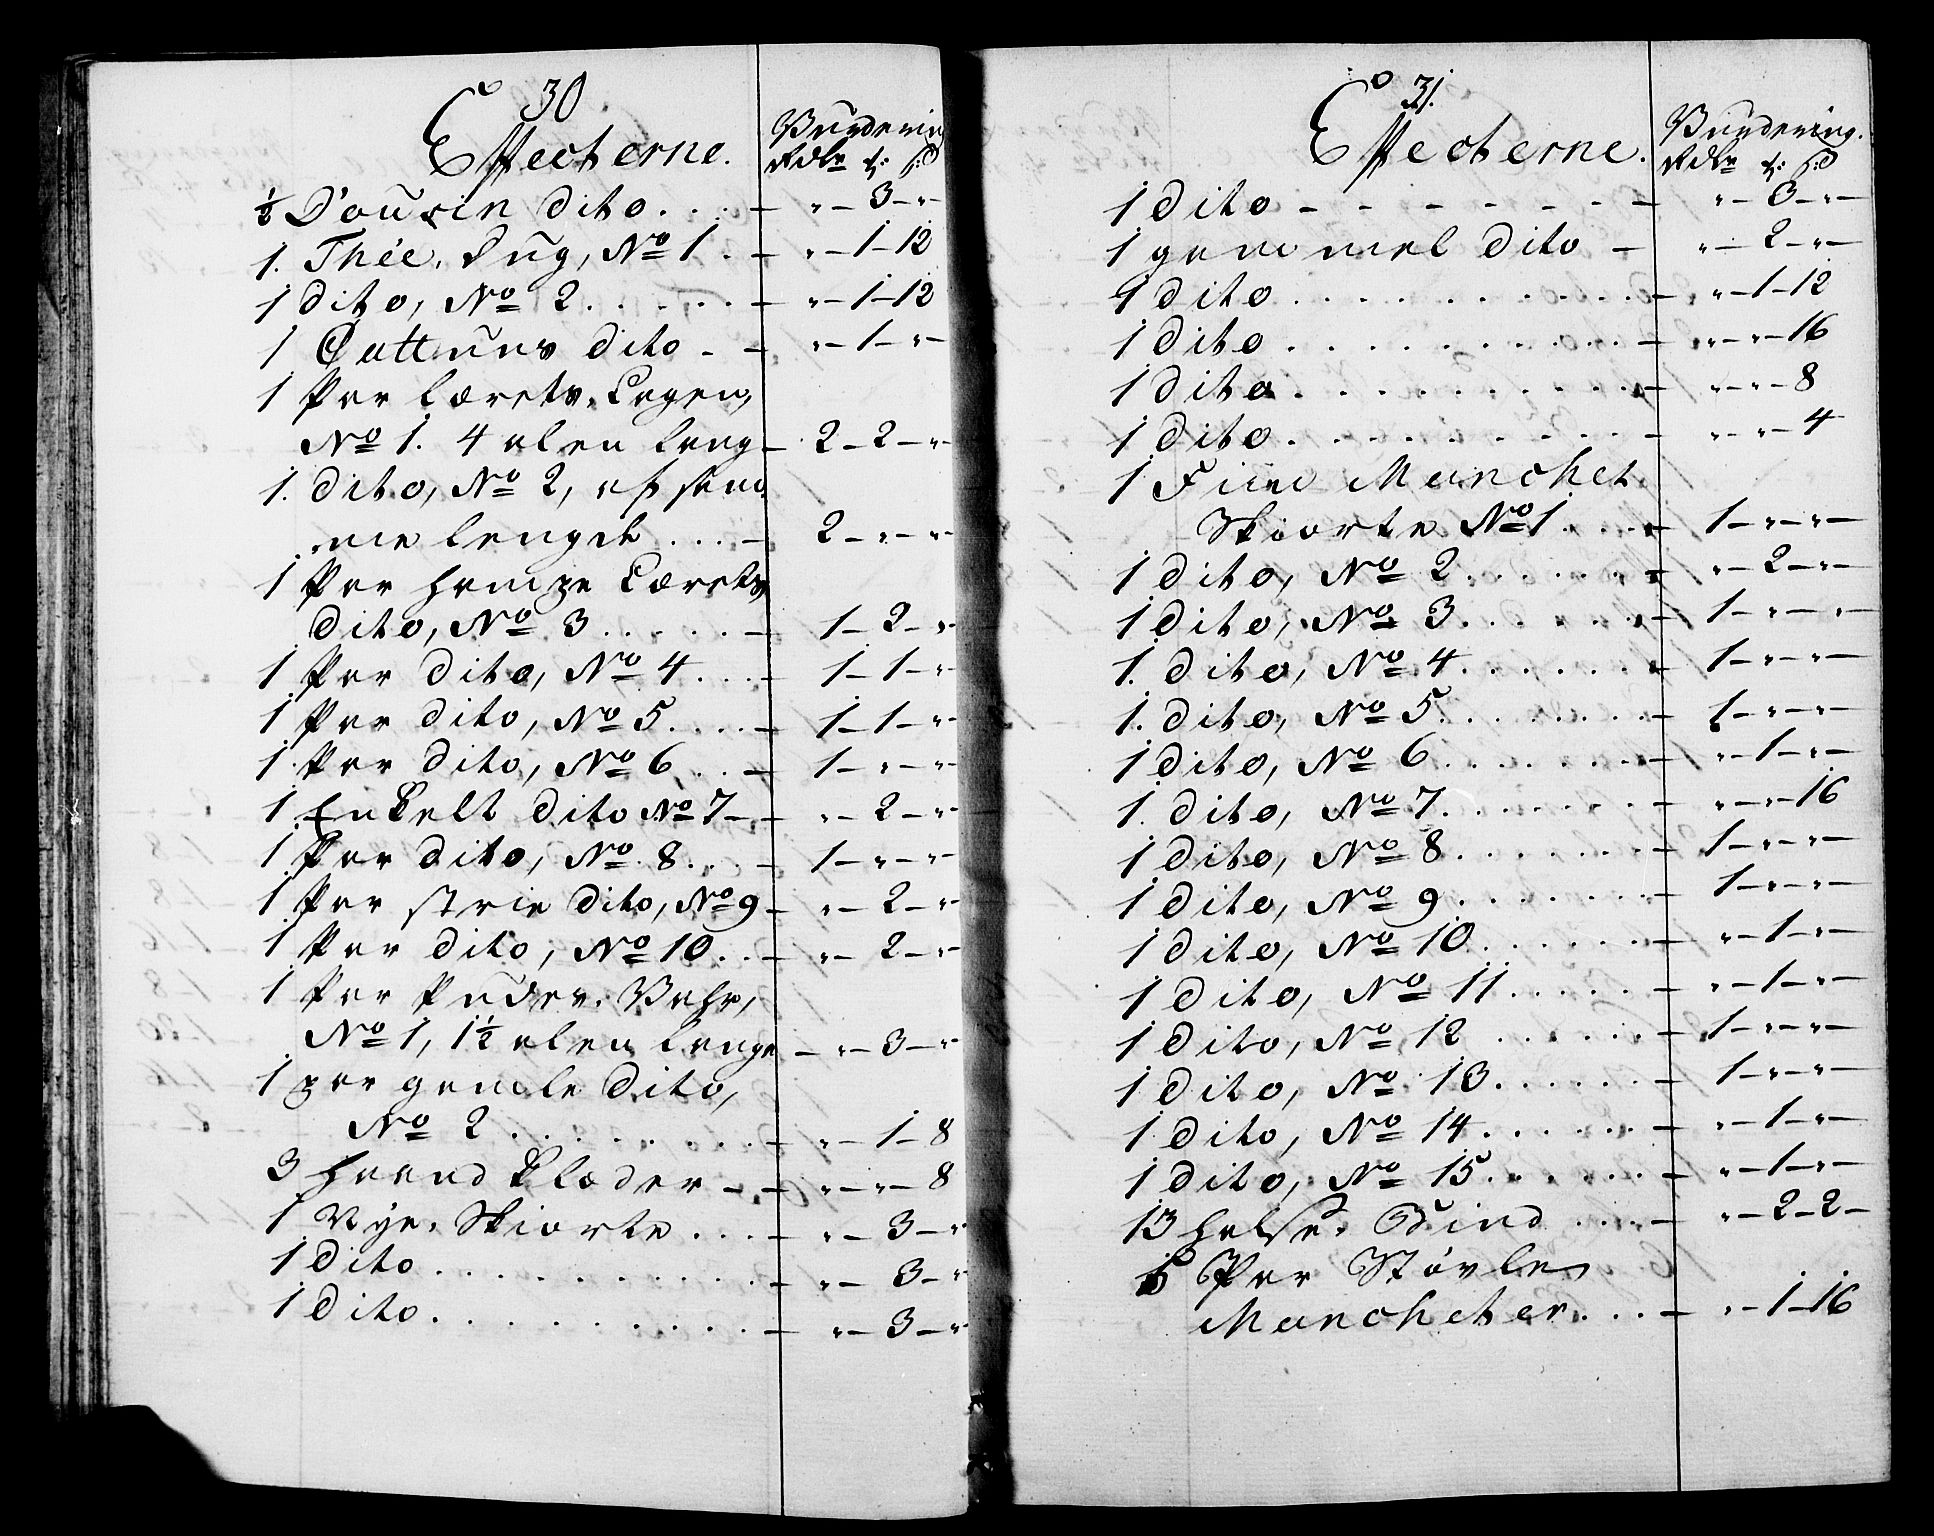 30
Effecterne.
Vurdering
Rdlr ɤ: ß:
½ Dousin dito. . . . - " - 3 - "
1. Thée, Dug, No 1. - " - 1 - 12
1 dito, No 2. . . . . - " - 1 - 12
1 Cattuns dito - - " - 1 - "
1 Par Lærets, Lagen,
No 1. 4 alen lang - 2 - 2 - "
1. dito, No 2, af sam,
me lengde . . . - 2 - " - "
1 Par hampe Lærets
dito, No 3. . . . . - 1 - 2 - "
1 Par dito, No 4 . . . - 1 - 1 - "
1 Par dito, No 5. . . . - 1 - 1 - "
1. Par dito, No 6 . . - 1 - " - "
1. Enkelt dito No 7 - - " - 2 - "
1. Par dito, No 8. . . - 1 - " - "
1. Par strie dito, No 9 - " - 2 - "
1 Par dito, No 10. . - " - 2 - "
1 Par Puder, Vahr,
No 1, 1½ alen lange - " - 3 - "
1 par gamle dito,
No 2 . . . . . . . . - " - 1 - 8
3 Haand Klæder - - " - " - 8
1 Nye, Skiorte . . . - " - 3 - "
1 dito . . . . . . . . . - " - 3 - "
1 dito . . . . . . . . . - " - 3 - "
31.
Effecterne.
Vurdering.
Rdlr ɤ: ß:
1 dito - - - - - - - " - 3 - "
1 gammel dito - " - 2 - "
1 dito . . . . . . . . . - " - 1 - 12
1 dito . . . . . . . . . - " - " - 16
1 dito . . . . . . . . . - " - " - 8
1 dito . . . . . . . . . - " - " - 4
1 Fiin Manchet
Skiorte No 1. . . . - 1 - " - "
1 dito, No 2. . . . . . - " - 2 - "
1 dito, No 3. . . . . . - 1 - " - "
1. dito, No 4. . . . . . - 1 - " - "
1. dito, No 5. . . . . . - 1 - " - "
1 dito, No 6. . . . . . - " - 1 - "
1. dito, No 7. . . . . . - " - " - 16
1 dito, No 8. . . . . . - 1 - " - "
1 dito, No 9. . . . . . - 1 - " - "
1 dito, No 10. . . . . . - " - 1 - "
1 dito, No 11. . . . . . - " - 1 - "
1 dito, No 12 . . . . . - 1 - " - "
1 dito, No 13. . . . . . - 1 - " - "
1 dito, No 14. . . . . . - " - 1 - "
1 dito, No 15. . . . . . - " - 1 - "
13 halse, Bind . . . . - " - 2 - 2 -
Par Støvle
Mancheter. . . . - " - 1 - 16